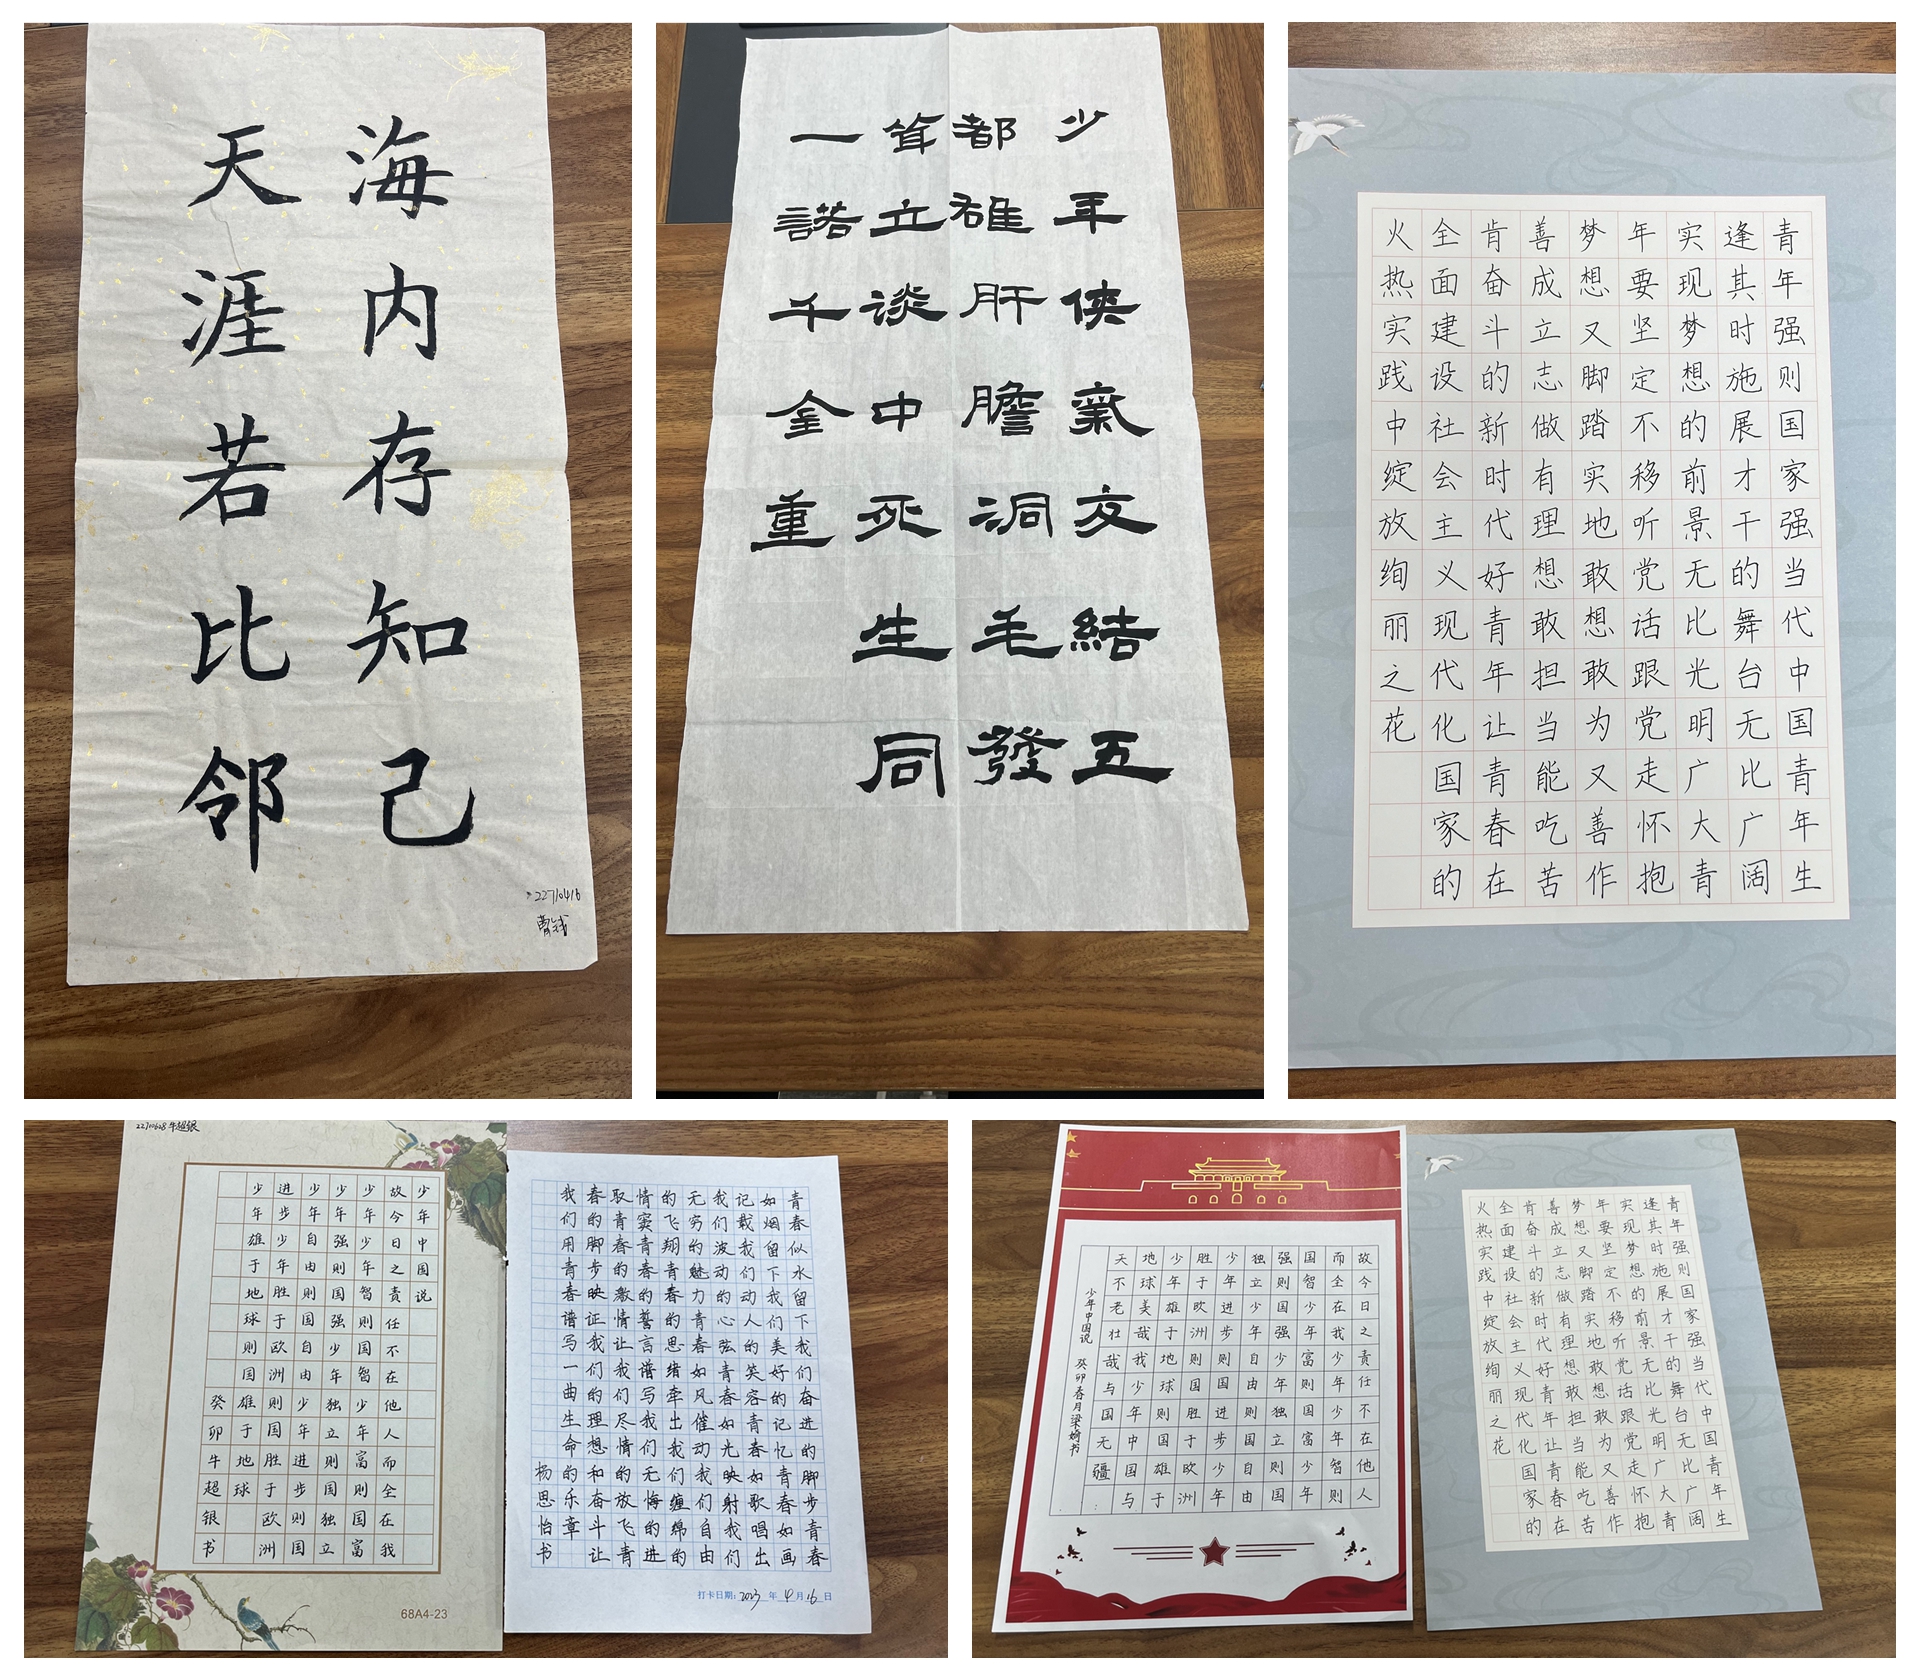 海内存知己
天涯若比邻
22710416
少年俠氣交結五
都雄肝膽洞毛發
耸立谈中死生同
一諾千金重
青年强则国家强当代中国青年生
逢其时施展才干的舞台无比广阔
实现梦想的前景无比光明广大青
年要坚定不移听党话跟党走怀抱
梦想又脚踏实地敢想敢为又善作
善成立志做有理想敢担当能吃苦
肯奋斗的新时代好青年让青春在
全面建设社会主义现代化国家的
火热实践中绽放绚丽之花
22710628 牛超银
少年中国说
故今日之责任不在他人而全在我
少年少年智则国智少年富则国富
少年强则国强少年独立则国独立
少年自由则国自由少年进步则国
进步少年胜于欧洲则国胜于欧洲
少年雄于地球则国雄于地球
癸卯牛超银书
68A4-23
青春似水留下我们奋进的脚步青春
如烟留下我们美好的记忆青春如画
记载我们动人的笑容青春如歌唱出
我们波动的心弦青春如光映射我们
无穷的魅力青春如风催动我们自由
的飞翔青春的思绪牵出我们缠绵的
情窦青春的誓言谱写我们无悔的进
取青春的激情让我们尽情的放飞青
春的脚步映证我们的理想和奋斗让
我们用青春谱写一曲生命的乐章
杨思怡书
打卡日期:2023年4月16日
故今日之责任不在他人
而全在我少年少年智则
国智少年富则国富少年
强则国强少年独立则国
独立少年自由则国自由
少年进步则国进步少年
胜于欧洲则国胜于欧洲
少年雄于地球则国雄于
地球美哉我少年中国与
天不老壮哉与国无疆
少年中国说 癸卯春月梁书
青年强则国家强当代中国青年生
逢其时施展才干的舞台无比广阔
实现梦想的前景无比光明广大青
年要坚定不移听党话跟党走怀抱
梦想又脚踏实地敢想敢为又善作
善成立志做有理想敢担当能吃苦
肯奋斗的新时代好青年让青春在
全面建设社会主义现代化国家的
火热实践中绽放绚丽之花